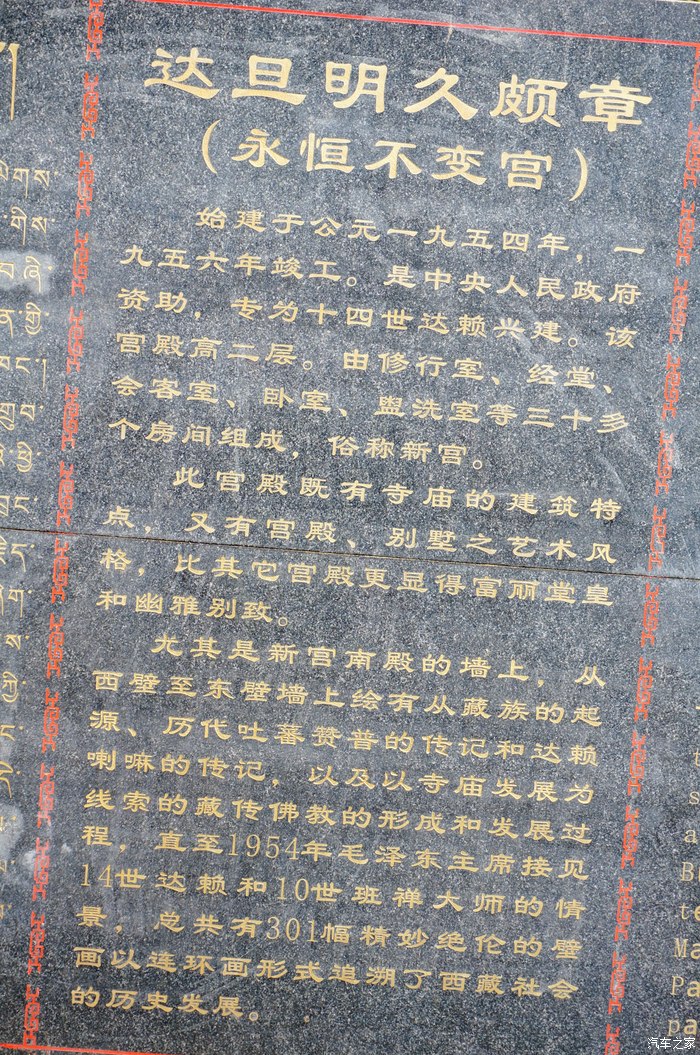 达旦明久颇章
（永恒不变宫）
始建于公元一九五四年，一
九五六年竣工。是中央人民政府
资助，专为十四世达赖兴建。该
宫殿高二层。由修行室、经堂、
会客室、卧室、盥洗室等三十多
个房间组成，俗称新宫。
此宫殿既有寺庙的建筑特
点，又有宫殿、别墅之艺术风
格，比其它宫殿更显得富丽堂皇
和幽雅别致。
尤其是新宫南殿的墙上，从
西壁至东壁墙上绘有从藏族的起
源、历代吐蕃赞普的传记和达赖
喇嘛的传记，以及以寺庙发展为
线索的藏传佛教的形成和发展过
程，直至1954年毛泽东主席接见
14世达赖和10世班禅大师的情
景，总共有301幅精妙绝伦的壁
画以连环画形式追溯了西藏社会
的历史发展。
汽车之家